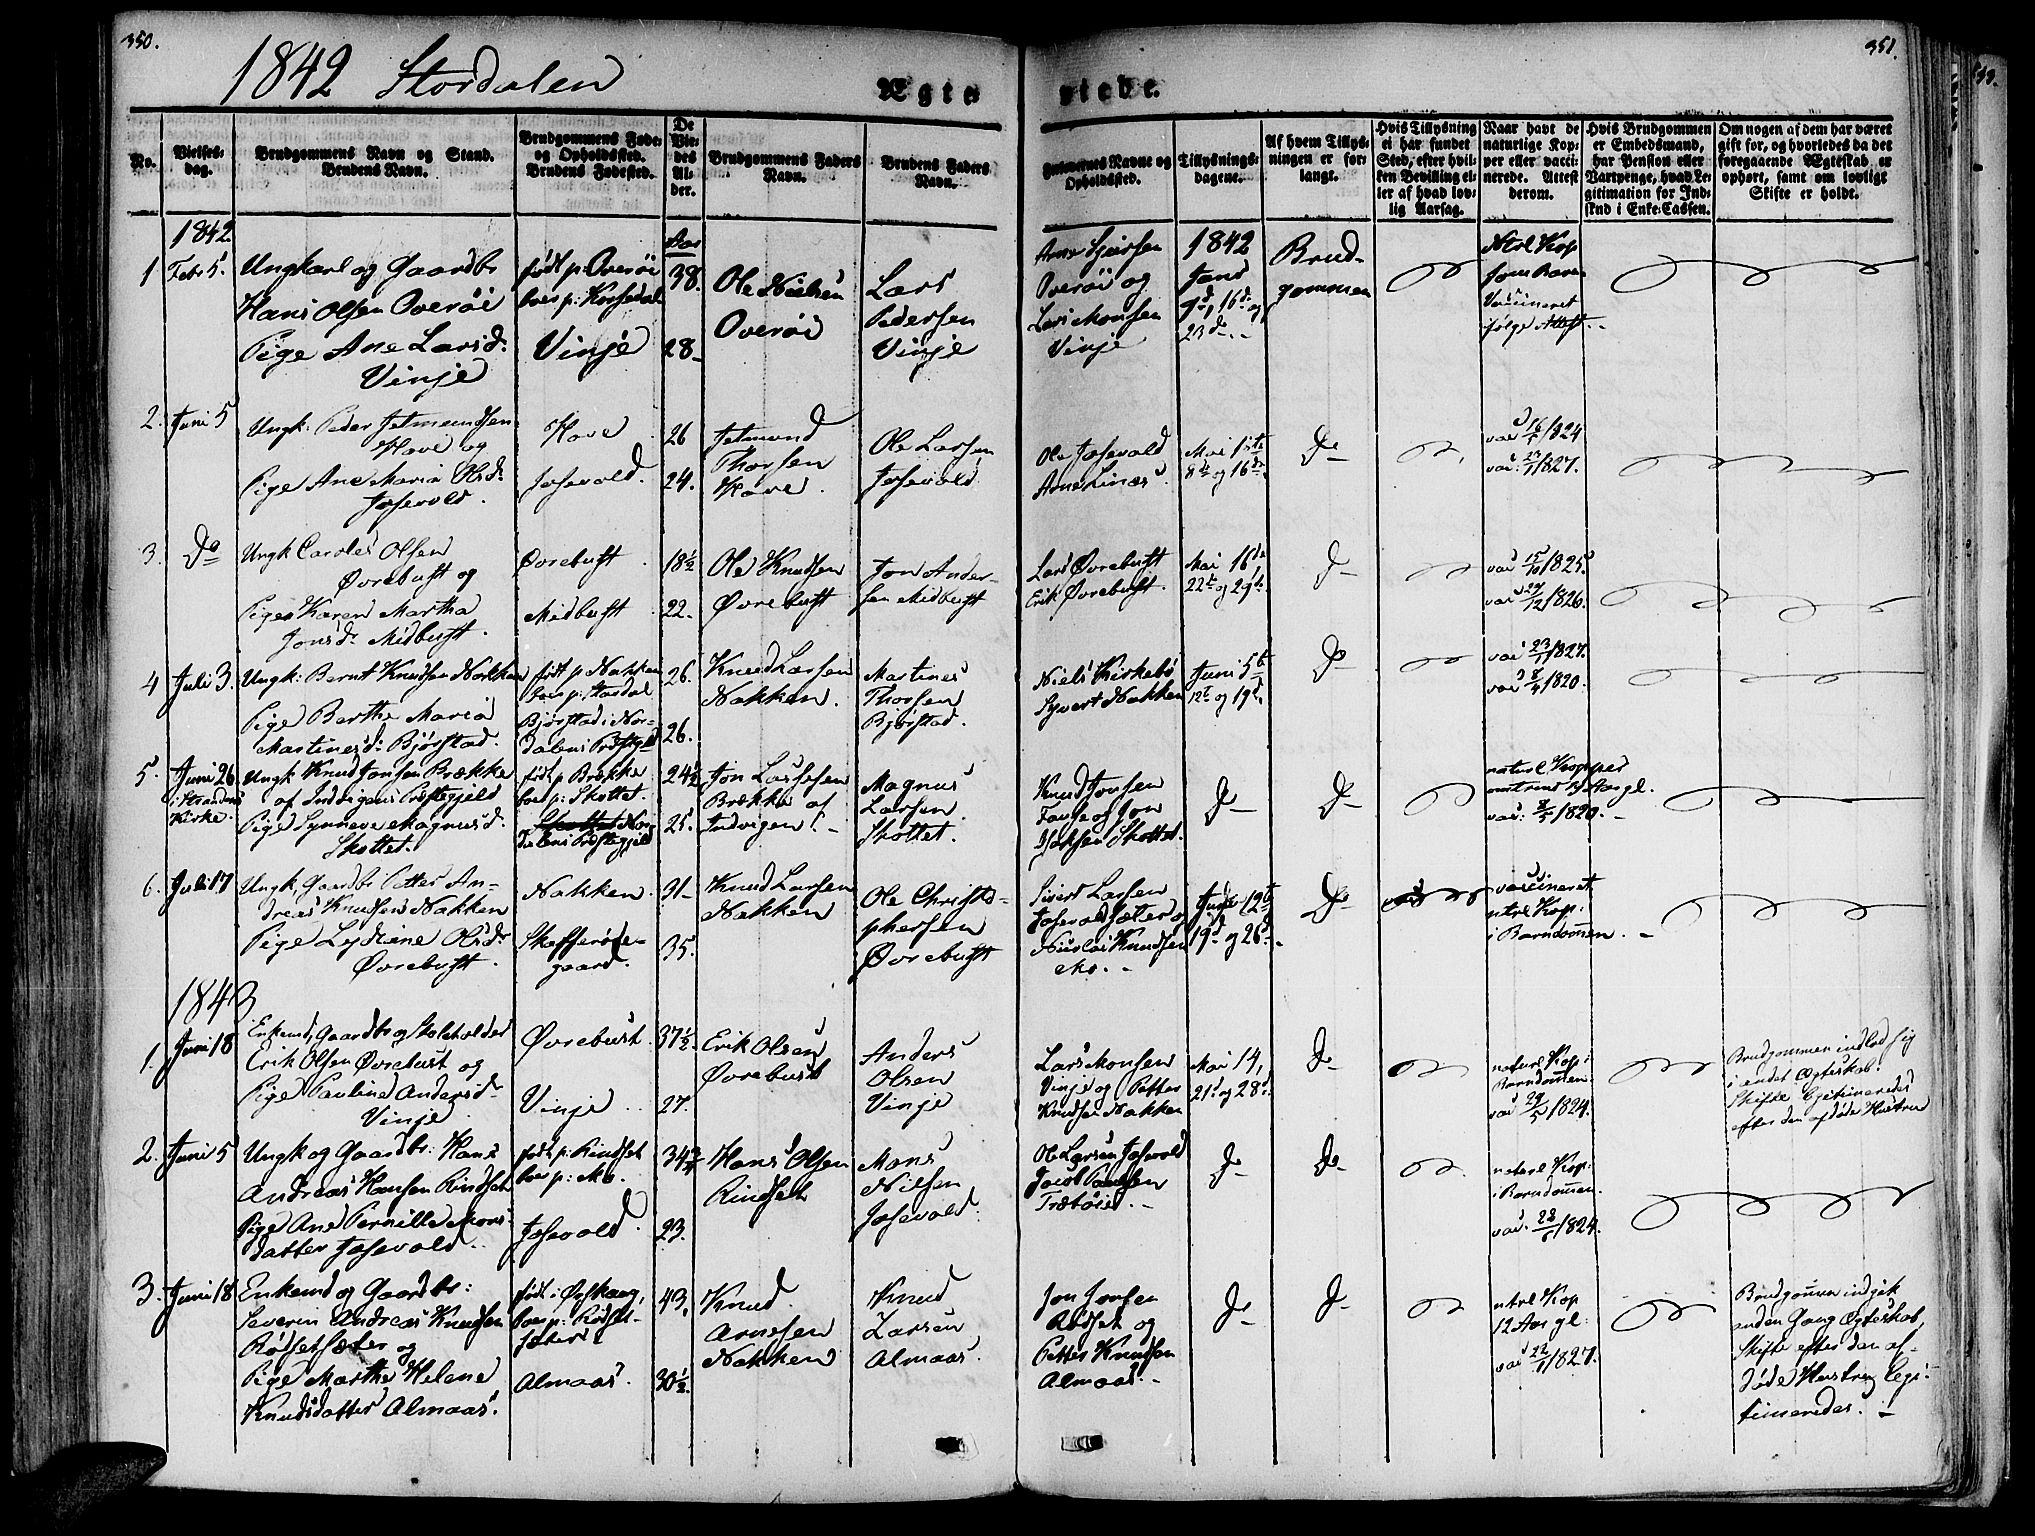 350.
1842 Stordalen
Ægte
viede.
351.
No.
Vielses-
dag.
Brudgommens Navn og Stand.
Brudens Navn.
Brudgommens Føde-
og Opholdssted.
Brudens Fødested.
De
Vie-
des
Al-
der.
Brudgommens Faders
Navn.
Brudens Faders
Navn.
Forlovernes Navne og
Opholdssted.
Tillysnings-
dagene.
Af hvem Tillys-
ningen er for-
langt.
Hvis Tillysning
ei har fundet
Sted, efter hvil-
ken Bevilling el-
ler af hvad lov-
lig Aarsag.
Naar havt de
naturlige Kop-
per eller vacci-
nerede. Attest
derom.
Hvis Brudgommen
er Embedsmand,
har Pension eller
Vartpenge, hvad Le-
gitimation for Ind-
skud i Enke-Cassen.
Om nogen af dem har været
gift for, og hvorledes da det
foregaaende Ægteskab er
ophørt, samt om lovligt
Skifte er holdt.
1842
1
Febr 5.
Ungkarl og Gaardbr
Hans Olsen Overøi
Pige Ane Larsd.
Vinje
født p: Overøi
boes p:
Vinje
Aar
38.
28
Ole Nielsen
Overøi
Lars
Pedersen
Vinje
Overøi og
Lars Monsen
Vinje
1842
9d, 16d og
23d
Brud-
gommen
ntrl Kop
som Barn
Vaccineret
ifølge Attest.
2.
Juni 5
Ungk: Peder Jetmundsen
Hove og
Pige Ane Maria Olsd.
Josevold.
Hove
Josevold.
26
24.
Jetmund
Thorsen
Hove.
Ole Larsen
Josevold
Ole Josevold
Arne Linaes.
Mai 1ste
8de og 16de
Do
vac 16/5 1824
vac. 23/1 1827.
3.
Do
Ungk Caroles Olsen
Øvrebust og
Pigen Karen Martha
Jonsd. Midbust.
Øvrebust
Midbust
18½
22.
Ole Knudsen
Øvrebust
Jon Ander-
sen Midbust
Lars Øvrebust
Erik Øvrebust.
Mai 16de
22de og 29de
Do
vac 15/10 1825
vac 29/12 1826.
4
Juli 3.
Ungk: Bernt Knudsen Nakken
Pige Berthe Maria
Martinesd: Bjørstad.
født p Nakken
boes p: Stordal
Bjørstad i Nor-
dalens Præstegjeld
26.
26.
Knud Larsen
Nakken.
Martines
Thorsen
Bjørstad.
Niels Kirkebø
Syvert Nakken
Juni 5t
12t og 19d.
Do
vac 23/1 1827.
vac 8/4 1820.
5.
Juni 26
i Strandens
Kirke.
Ungk Knud Jonsen Brække
af Indvigens Præstegjeld
Pige Synneve Magnusd.
Skottet.
født p Brække
boes p: Skottet.
Nor-
dalens Præstegjeld
24½
25.
Jon Larsesen
Brække af
Indvigen.
Magnus
Larsen
Skottet.
Knud Jonsen
og Jon
Skottet.
Do
Do
naturl Kopper
omtrent Aar gl.
vac: 8/5 1820.
6.
Juli 17
Ungk, Gaardbr Petter An-
dreas Knudsen Nakken
Pige Lydiane Olsd.
Øvrebust.
Nakken.
gaard.
31
35.
Knud Larsen
Nakken
Ole Christo-
phersen
Øvrebust
Sivert Larsen
Josevoldsæter og
Nicolai Knudsen
Mo.
Juni 12t
19d og 26d
Do
vaccineret
ntrl Kop:
i Barndomen.
1843
1.
Juni 18
Enkemd, Gaardbr og Skoleholder
Erik Olsen Øvrebust og
Pige Pauline Andersd.
Vinje.
Øvrebust
Vinje
37½
27.
Erik Olsen
Øvrebust
Anders
Olsen
Vinje
Lars Monsen
Vinje og Petter
Knudsen Nakken
Mai 14,
21d og 28d.
Do
naturl Kop i
Barndomen
vac 24/5 1824.
Brudgommen indlod sig
i andet Ægteskab.
Skifte legitimeredes
efter den afdøde Hustrue
2.
Juni 5
Ungk og Gaardbr: Hans
Andreas Hansen Rindset
Pige Ane Pernille Mons
datter Josevold.
født p: Rindset
boes p: Mo.
Josevold.
34¾
23.
Hans Olsen
Rindset
Mons
Nilsen
Josevold.
Ole Larsen Josevold
Do
Do
ntrl Kop:
i Barndomen.
vac. 28/6 1824.
3.
Juni 18
Enkemd og Gaardbr:
Severin Andreas Knudsen
Rødsetsæter og
Pige Marthe Helene
Knudsdatter Almaas.
født i Ørskoug,
boes p: Rødset-
sæter
Almaas.
43,
30½
Knud
Arnesen
Nakken
Knud
Larsen
Almaas.
Jon Jonsen
Rødset og
Petter Knudsen
Almaas.
Do
Do
ntrl Kop
12 Aar gl:
vac 22/1 1827.
Brudgommen indgik
anden Gang Ægteskab,
Skifte efter den af-
døde Hustrue legi-
timeredes.